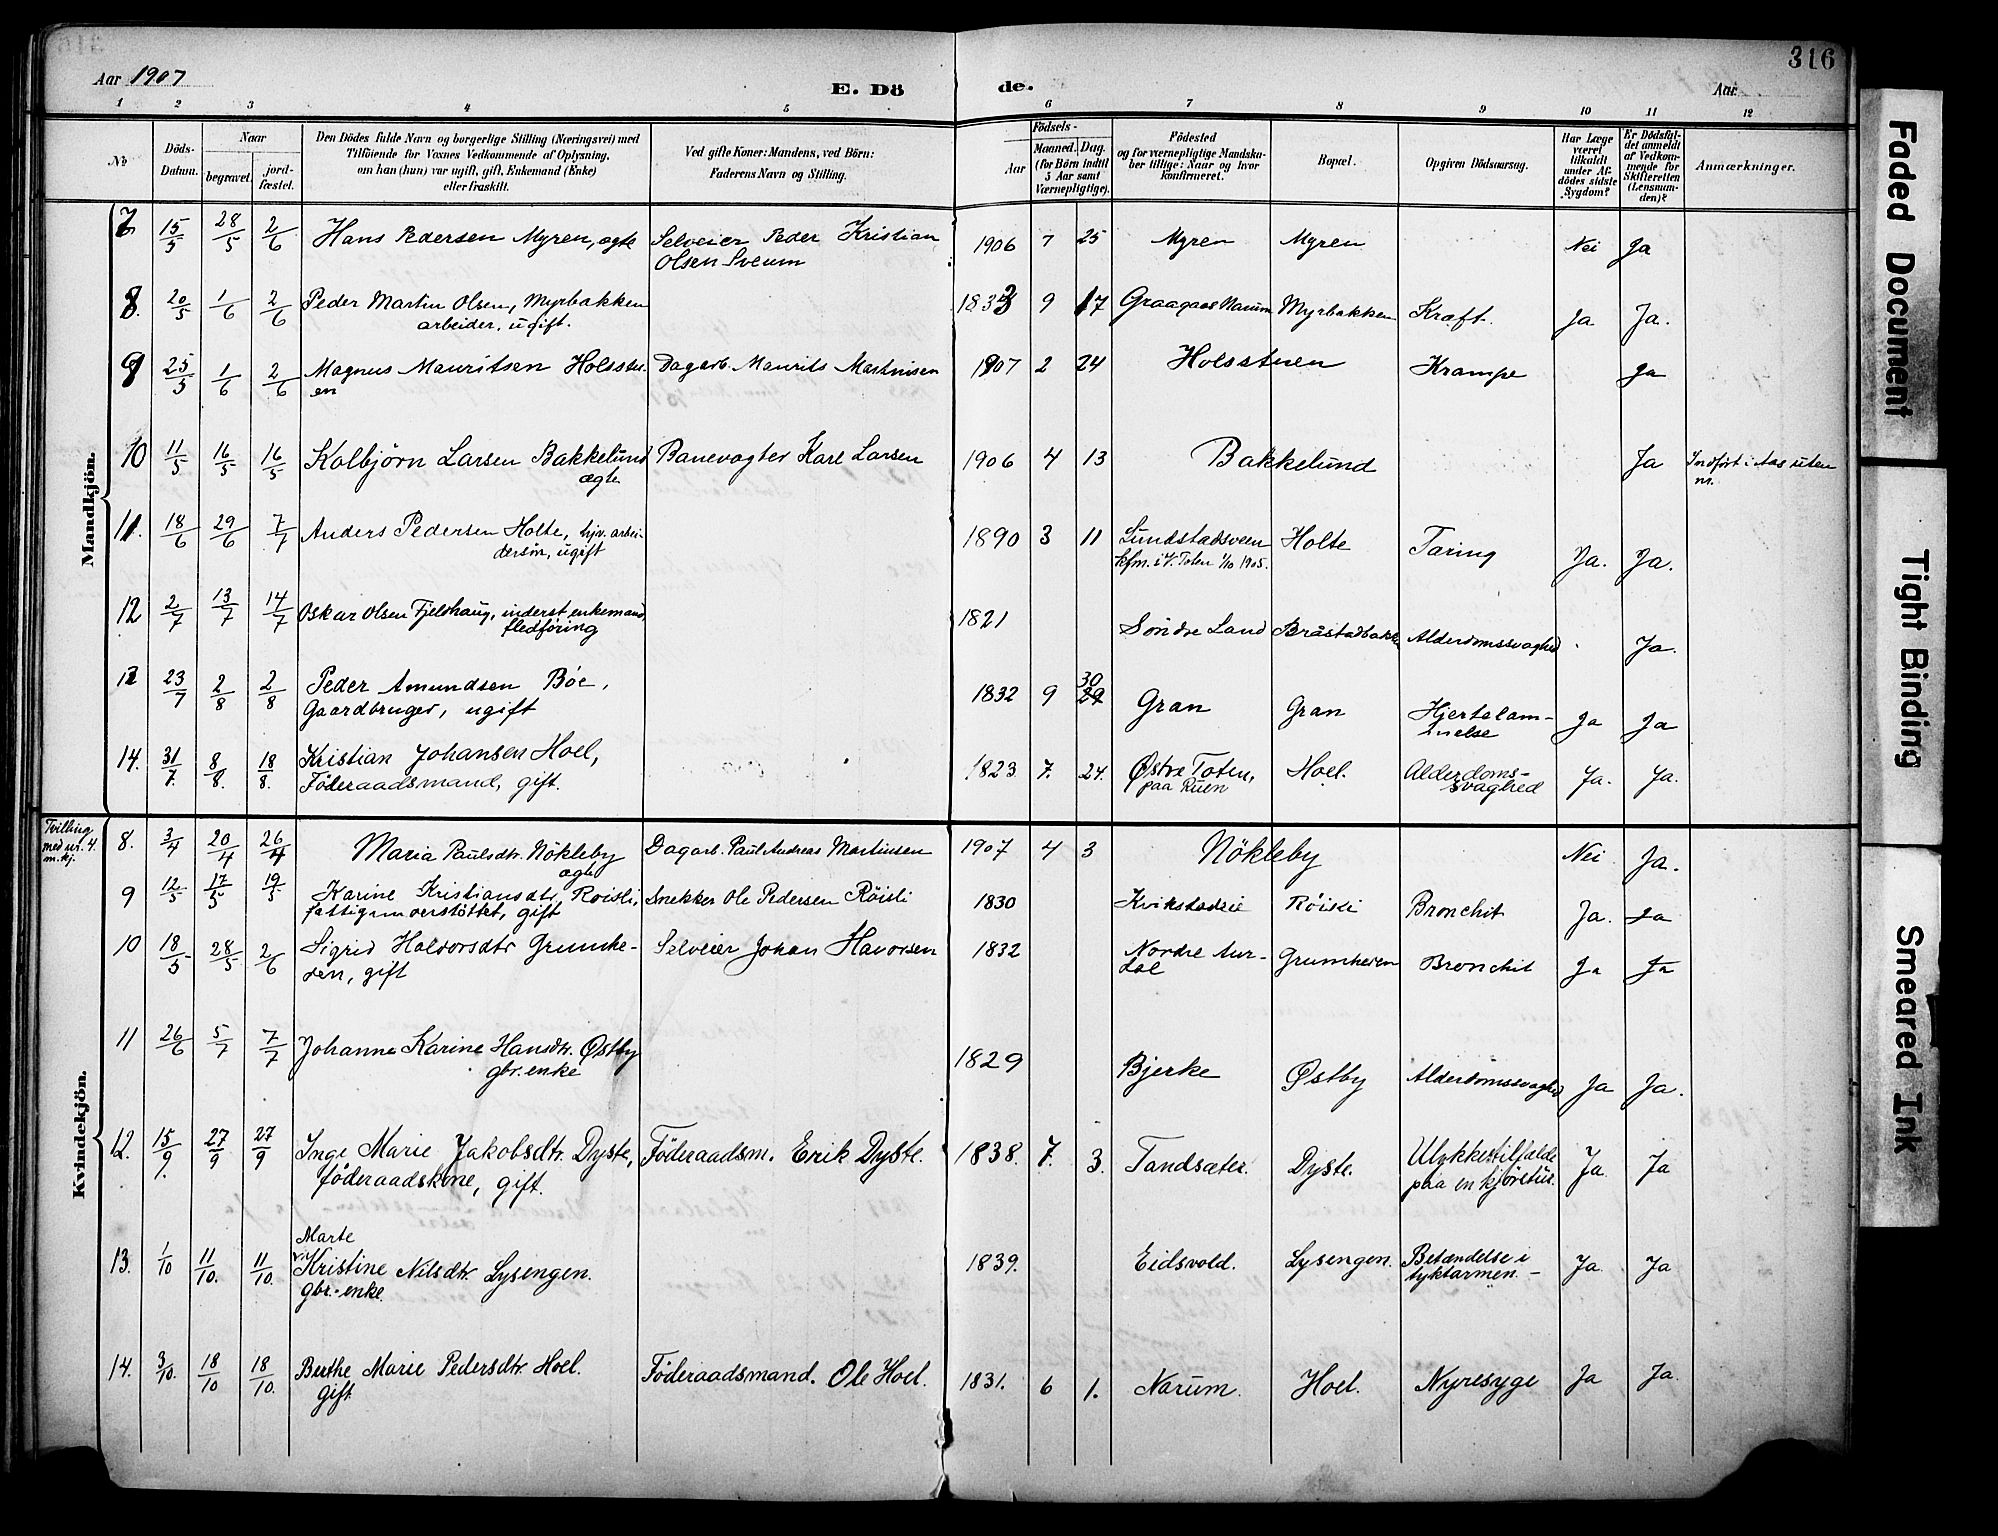 316
Aar 1907
E. Dö
de.
Aar
1 2 3 4 5 6 7 8 9 10 11 12
No
Döds-
Datum.
Naar
begravet.
jord-
fæstet.
Den Dödes fulde Navn og borgerlige Stilling (Næringsvei) med
Tilföiende for Voxnes Vedkommende af Oplysning,
om han (hun) var ugift, gift, Enkemand (Enke)
eller fraskilt.
Ved gifte Koner: Mandens, ved Börn:
Faderens Navn og Stilling.
Födsels-
Aar
Maaned. Dag.
(for Börn indtil
5 Aar samt
Værnepligtige).
Födested
og for værnepligtige Mandska-
ber tillige: Naar og hvor
konfirmeret.
Bopæl.
Opgiven Dödsaarsag.
Har Læge
været
tilkaldt
under Af-
dödes sidste
Sygdom?
Er Dödsfal-
det anmeldt
af Vedkom-
mende for
Skifteretten
(Lensman-
den)?
Anmærkninger.
Mandkjön.
7. 15/5 28/5 2/6 Hans Pedersen Myren, ægte Selveier Peder Kristian 1906 7 25 Myren Myren Nei Ja
Olsen Sveum
8. 20/5 1/6 2/6 Peder Martin Olsen, Myrbakken 9 17 Graagaas Narum Myrbakken Kræft. Ja Ja.
arbeider, ugift.
9 25/5 1/6 2/6 Magnus Mauritsen Holsstu- Dagarb. Maurits Martinisen 1907 2 24 Holsstuen Krampe Ja
en
10 11/5 16/5 16/5 Kolbjörn Larsen Bakkelund Banevogter Karl Larsen 1906 4 13 Bakkelund Ja Indfört i Aas uten
ægte nr.
11. 18/6 29/6 7/7 Anders Pedersen Holte, hjv. arbei- 1890 3 11 Lundstadsveen Holte Taring Ja. Ja.
dersön, ugift kfm. i V. Toten 1/10 1905.
12 2/7 13/7 14/7 Oskar Olsen Fjeldhaug, inderst, enkemand, 1821 Söndre Land Bråstadbakken Alderdomssvaghed Ja.
fledföring
12 23/7 2/8 2/8 Peder Amundsen Böe, 1832 9 30 29 Gran Gran Hjertelam-
Gaardbruger, ugift melse Ja Ja
14. 31/7. 8/8. 18/8. Kristian Johansen Hoel, 1823 7. 24. Østre Toten, Hoel. Alderdoms- Ja. Ja.
Föderaadsmand, gift. paa Ruen svaghed
Kvindekjön.
Tvilling
med nr. 4.
m. kj.
8. 3/4 20/4 26/4 Maria Paulsdtr. Nökleby Dagarb. Paul Andreas Martinsen 1907 4 3 Nökleby Nei Ja.
ægte
9 12/5 17/5 19/5 Karine Kristiansdtr. Röisli, Snekker Ole Pedersen Röisli 1830 Kvikstadeie Röisli Bronchit Ja. Ja
fattigunderstöttet, gift
10 18/5 28/5 2/6 Sigrid Halvorsdtr Grumhe- Selveier Johan Havorsen 1832 Nordre Aur- Grumheien Bronchit Ja Ja
ien, gift dal
11 26/6 5/7 7/7 Johanne Karine Hansdtr. Østby 1829 Bjerke Østby Alderdomssvaghed Ja Ja.
gbr. enke
12. 15/9. 27/9 27/9 Inge Marie Jakobsdtr. Dyste, Föderaadsm. Erik Dyste. 1838. 7. 3. Tandsæter. Dyste. Ulykkestilfælde Ja. Ja
föderaadskone, gift. paa en kjöretur.
Marte
13. 1/10 11/10. 11/10. Kristine Nilsdtr. Lysengen. 1839. Eidsvold. Lysengen. Betændelse i Ja. Ja
gbr.-enke. tyktarmen.
14. 3/10. 18/10 18/10. Berthe Marie Pedersdtr. Hoel. Föderaadsmand. Ole Hoel. 1831. 6 1. Narum. Hoel. Nyresyge Ja Ja.
gift
Faded Document
Tight Binding
Smeared Ink